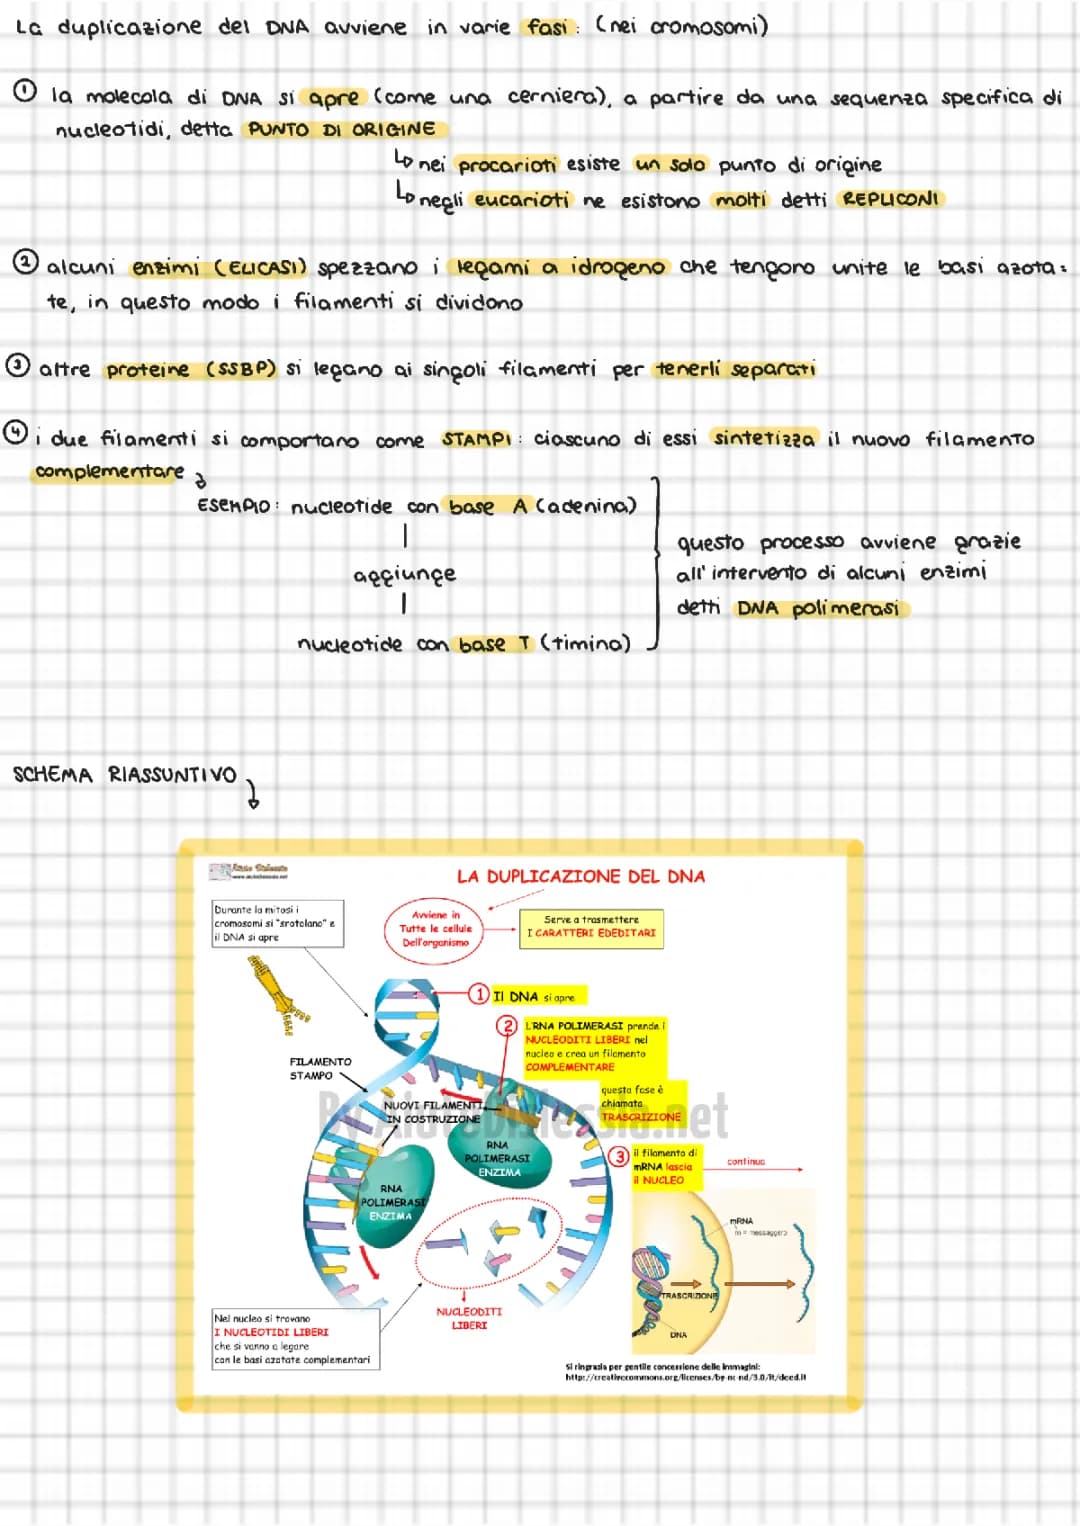 La duplicazione del DNA avviene in varie fasi: (nei cromosomi)
① la molecola di DNA si apre (come una cerniera), a partire da una sequenza specifica di
nucleotidi, detta PUNTO DI ORIGINE
↳ nei procarioti esiste un solo punto di origine
↳ negli eucarioti ne esistono molti detti REPLICONI
② alcuni enzimi (ELICASI) spezzano i legami a idrogeno che tengono unite le basi azota=
te, in questo modo i filamenti si dividono
③ altre proteine (SSBP) si legano ai singoli filamenti per tenerli separati
④ i due filamenti si comportano come STAMPI: ciascuno di essi sintetizza il nuovo filamento
complementare
ESEMPIO: nucleotide con base A (adenina)
aggiunge
nucleotide con base T (timina)
questo processo avviene grazie
all'intervento di alcuni enzimi
detti DNA polimerasi
SCHEMA RIASSUNTIVO
LA DUPLICAZIONE DEL DNA
Durante la mitosi i
cromosomi si "srotolano" e
il DNA si apre
Avviene in
Tutte le cellule
Dell'organismo
Serve a trasmettere
I CARATTERI EDEDITARI
1 Il DNA si apre
2 L'RNA POLIMERASI prende i
NUCLEODITI LIBERI nel
nucleo e crea un filamento
COMPLEMENTARE
questa fase è
chiamata
TRASCRIZIONE
FILAMENTO
STAMPO
NUOVI FILAMENTI
IN COSTRUZIONE
RNA
POLIMERASI
ENZIMA
RNA
POLIMERASI
ENZIMA
3 il filamento di
mRNA lascia
il NUCLEO
continua
mRNA
m = messaggero
TRASCRIZIONE
DNA
NUCLEODITI
LIBERI
Nel nucleo si trovano
I NUCLEOTIDI LIBERI
che si vanno a legare
con le basi azotate complementari
Si ringrazia per gentile concessione delle immagini:
http://creativecommons.org/licenses/by-nc-nd/3.0/it/deed.it